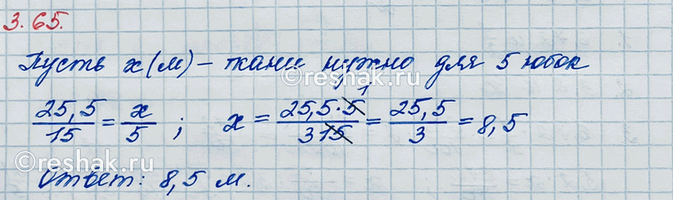 3.65.
Пусть x(м) – ткани нужно для 5 юбок
25,5/15 = x/5 ; x = 25,5·5/3 15 1 = 25,5/3 = 8,5
Ответ: 8,5 м.
reshak.ru
reshak.ru
reshak.ru